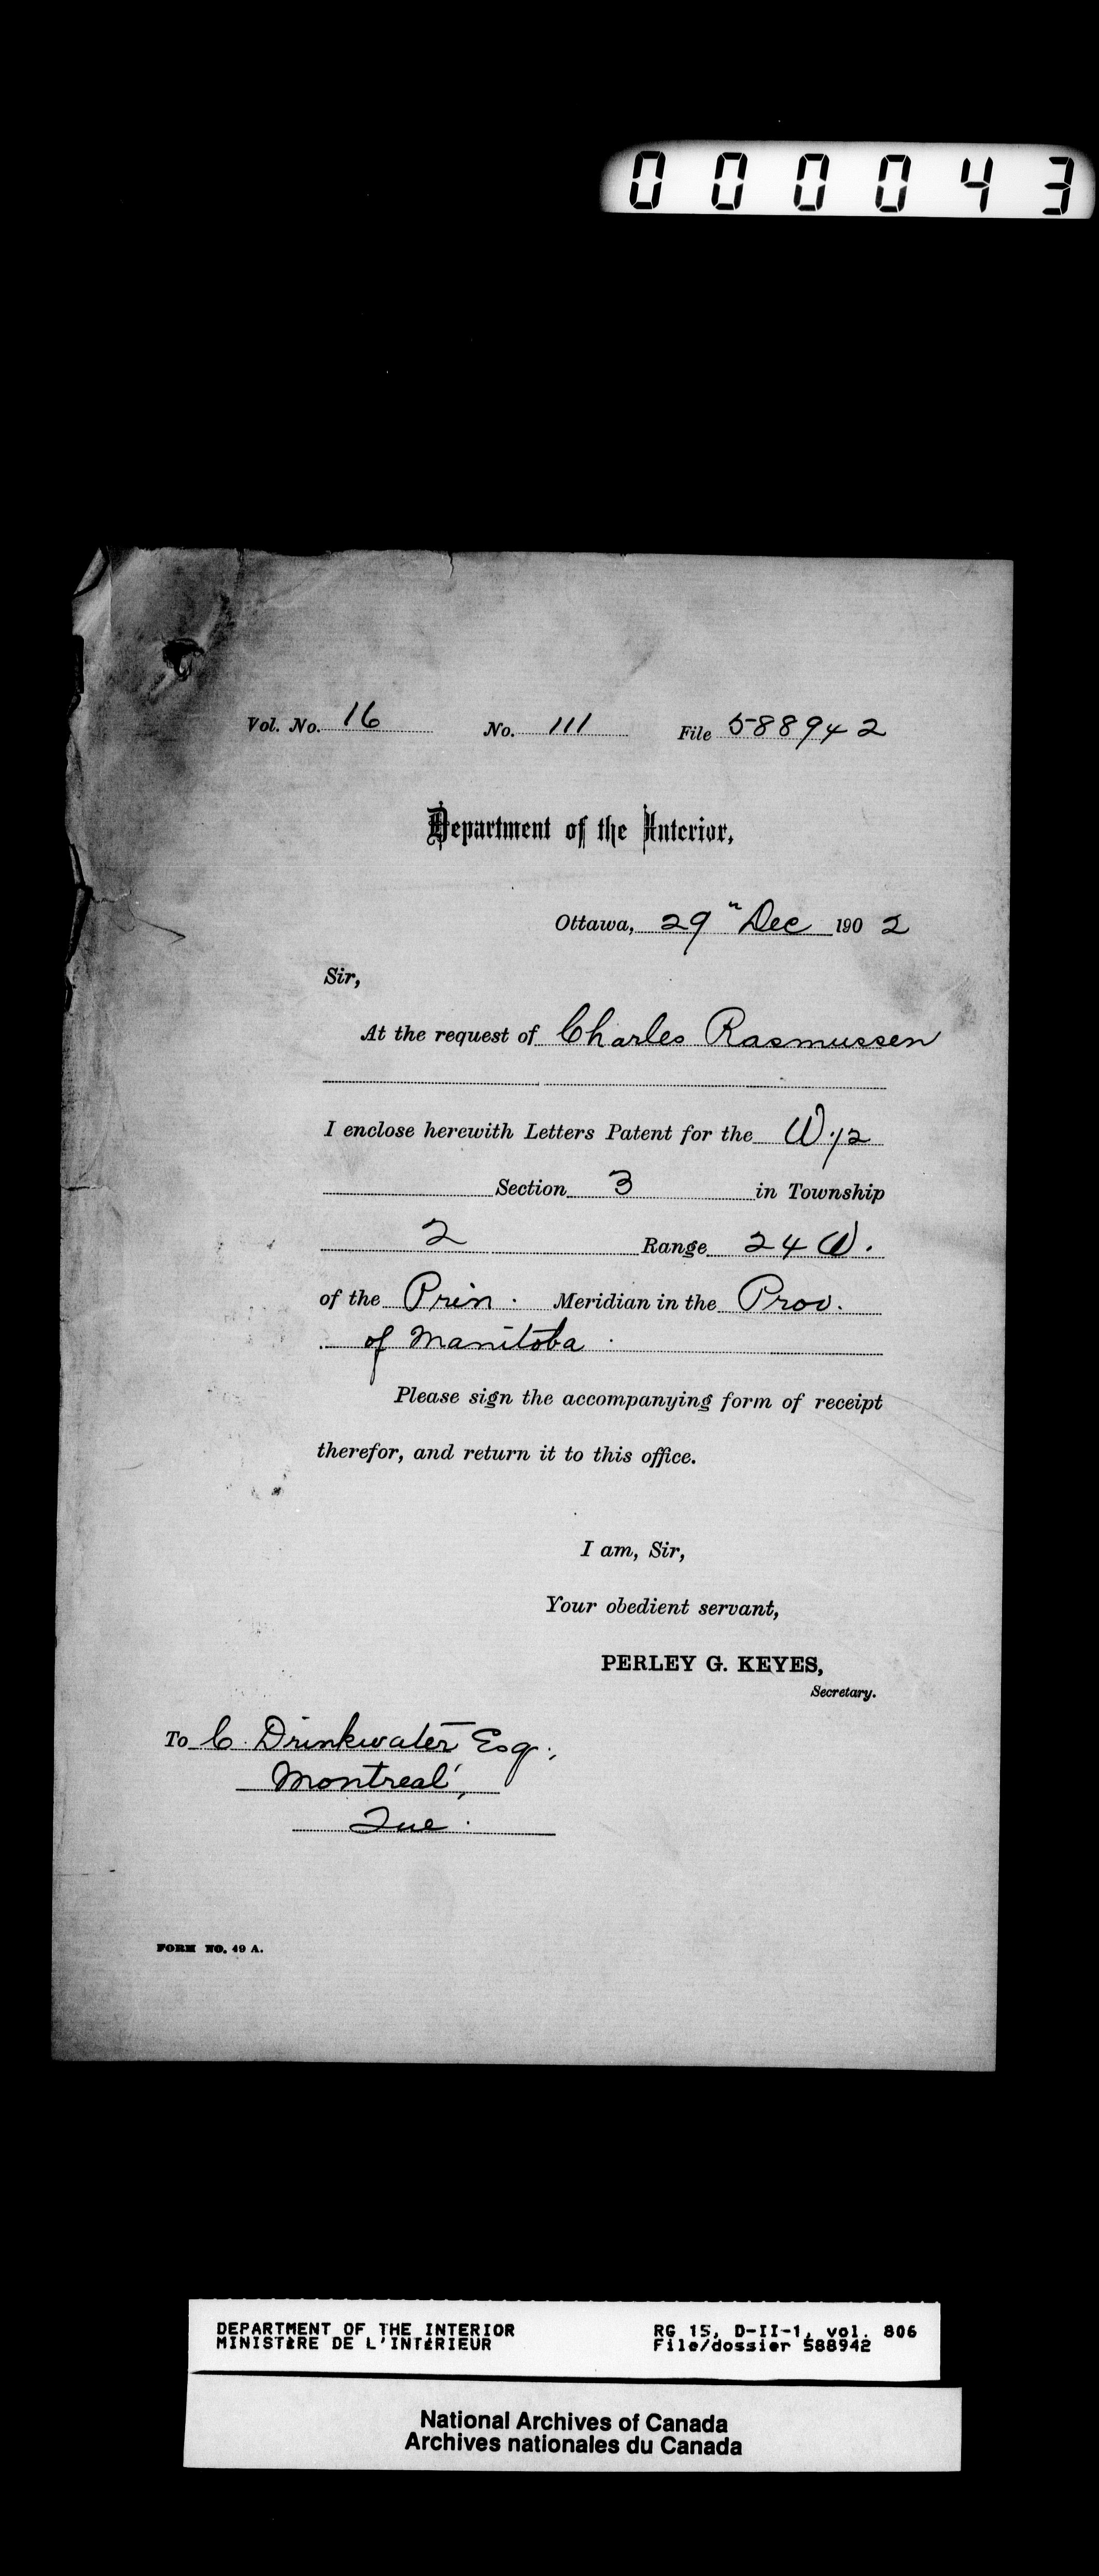 000043
Vol. No. 16 No. 111 File 588942
Department of the Interior,
Ottawa, 29" Dec 1902
Sir,
At the request of Charles Rasmussen
I enclose herewith Letters Patent for the W. 1/2
Section 3 in Township
2 Range 24 W.
of the Prin. Meridian in the Prov.
of Manitoba
Please sign the accompanying form of receipt
therefor, and return it to this office.
I am, Sir,
Your obedient servant,
PERLEY G. KEYES,
Secretary.
To C. Drinkwater Esq.,
Montreal,
Que.
FORM NO. 49 A.
DEPARTMENT OF THE INTERIOR RG 15, D-II-1, vol. 806
MINISTÈRE DE L'INTÉRIEUR File/dossier 588942
National Archives of Canada
Archives nationales du Canada